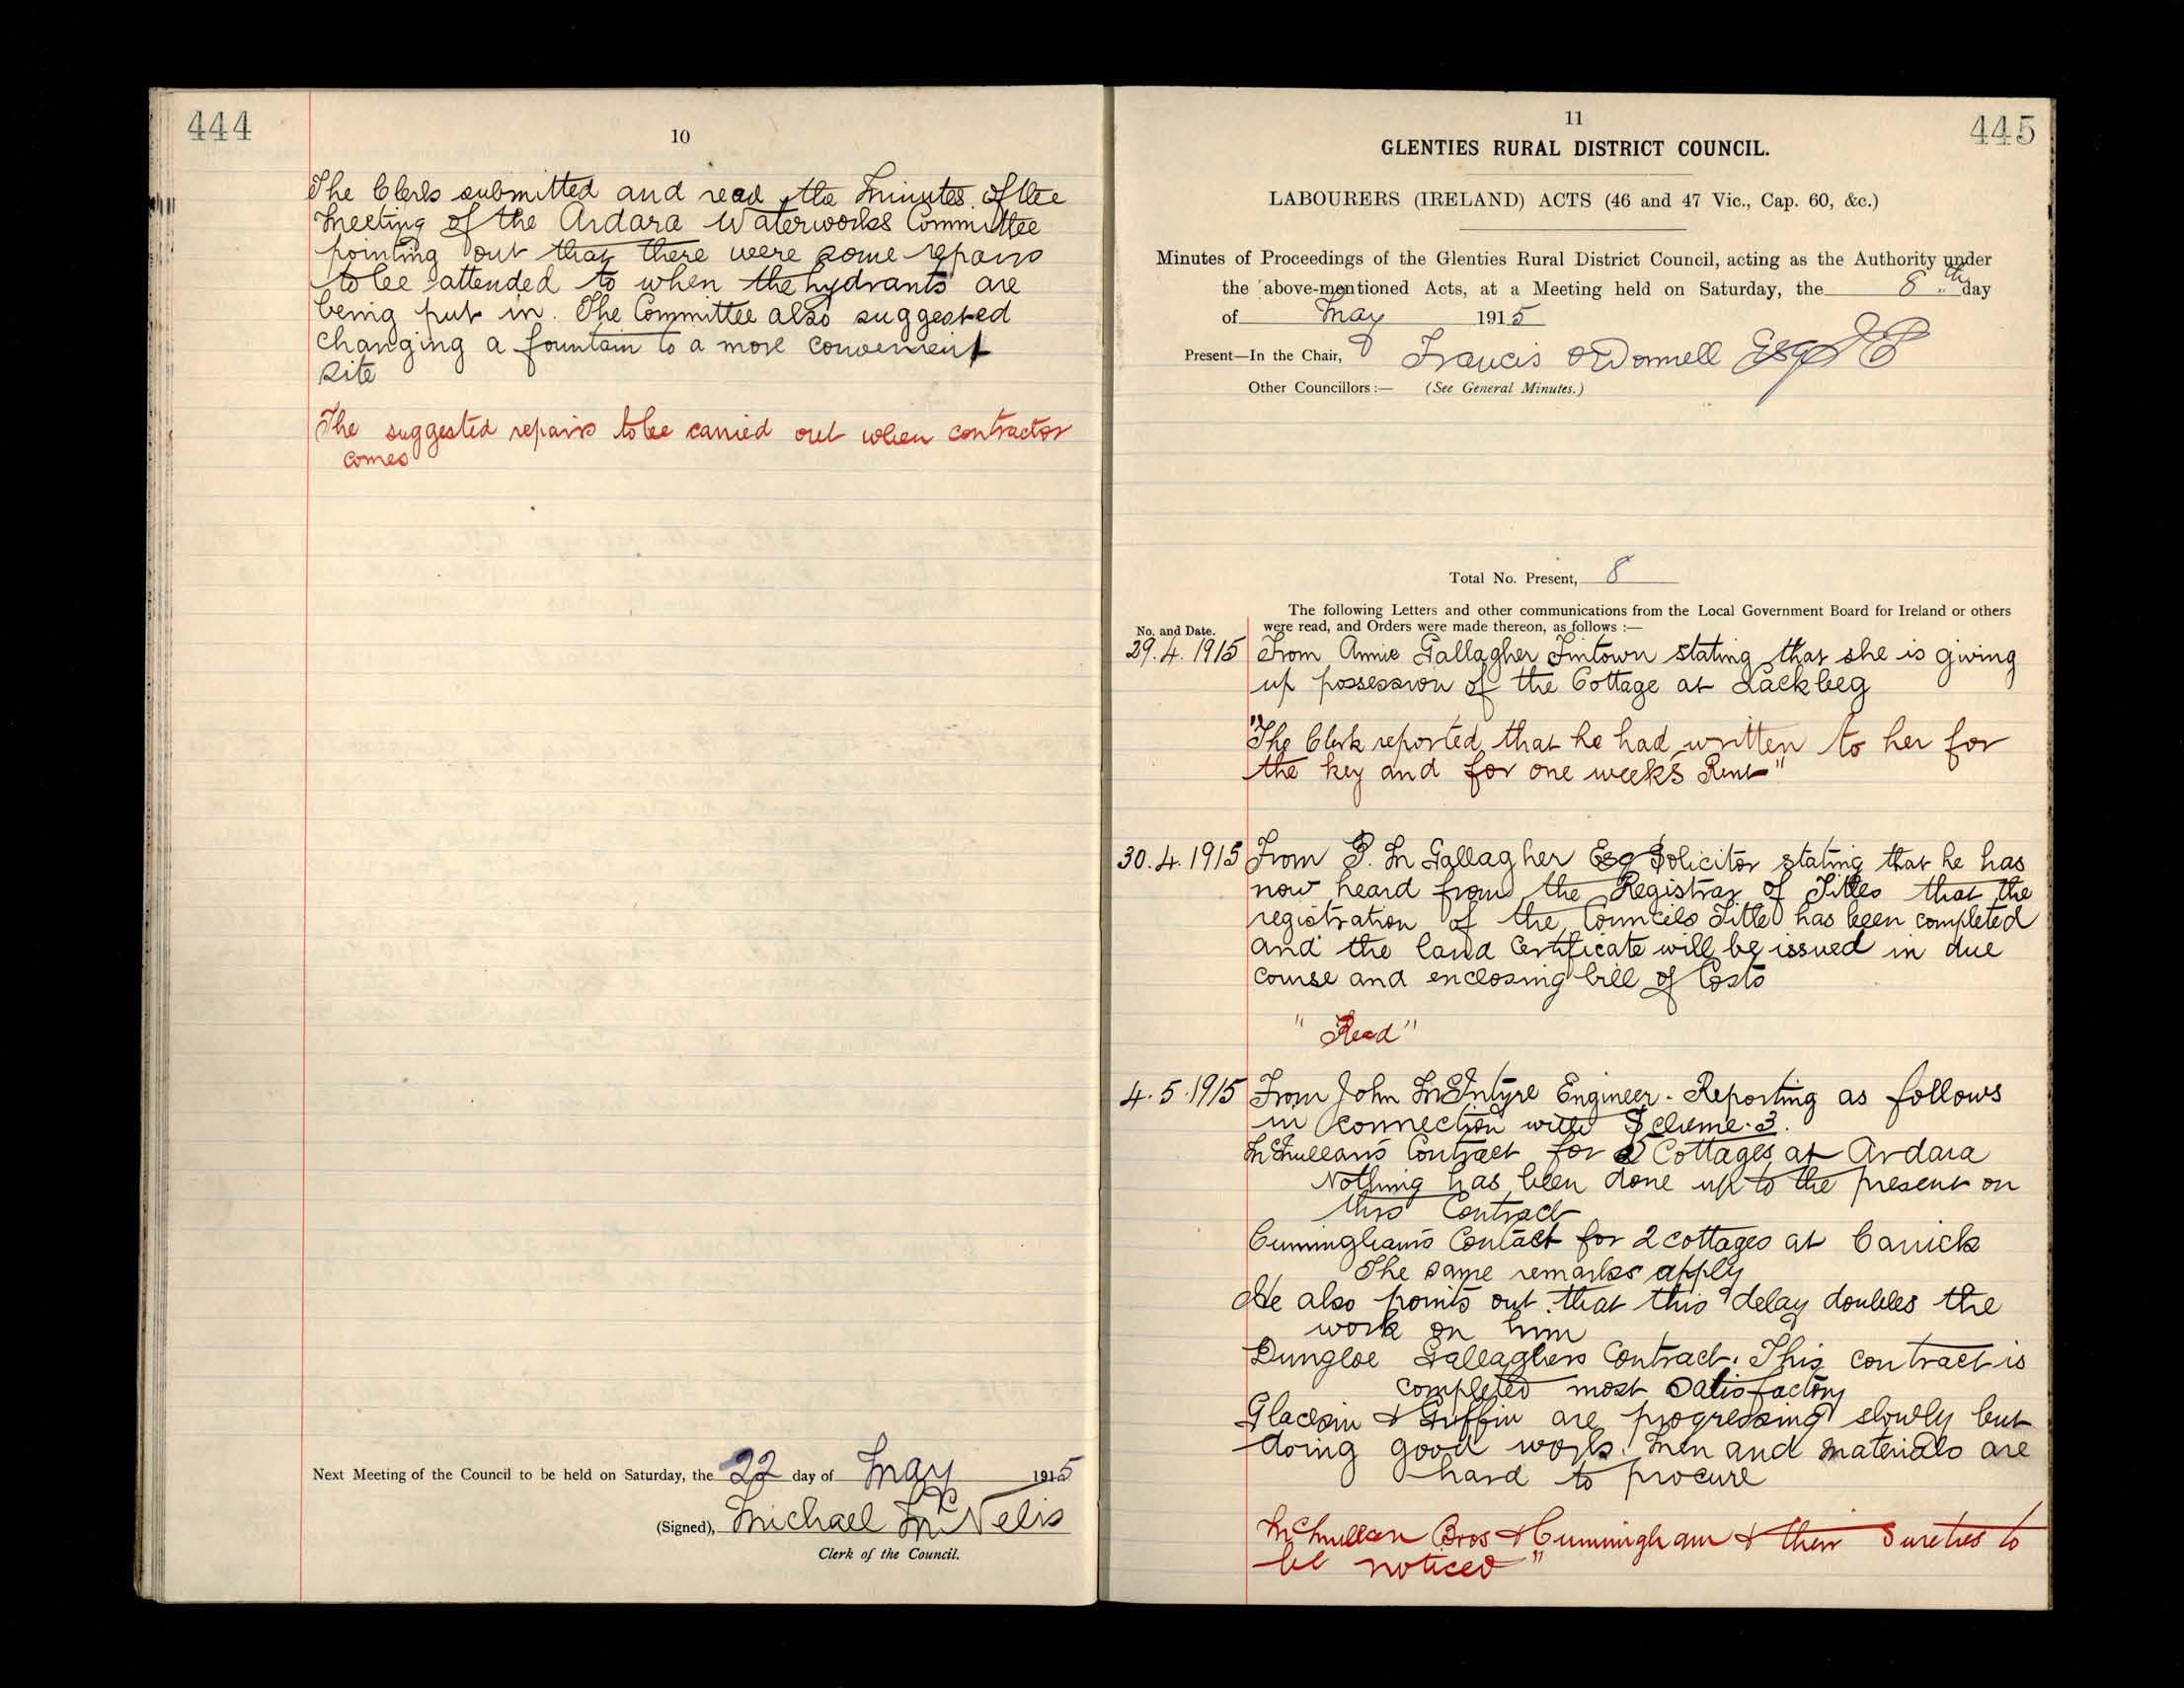 444
10
The Clerk submitted and read the Minutes of the
Meeting of the Ardara Waterworks Committee
pointing out that there were some repairs
to be attended to when the hydrants are
being put in. The Committee also suggested
changing a fountain to a more convenient
site
The suggested repairs to be carried out when contractor
comes
Next Meeting of the Council to be held on Saturday, the 22 day of May 1915
(Signed), Michael McNelis
Clerk of the Council.
11
445
GLENTIES RURAL DISTRICT COUNCIL.
LABOURERS (IRELAND) ACTS (46 and 47 Vic., Cap. 60, &c.)
Minutes of Proceedings of the Glenties Rural District Council, acting as the Authority under
the above-mentioned Acts, at a Meeting held on Saturday, the 8th day
of May 1915
Present—In the Chair, Francis O'Donnell Esqr JP
Other Councillors:— (See General Minutes.)
Total No. Present, 8
The following Letters and other communications from the Local Government Board for Ireland or others
No. and Date. were read, and Orders were made thereon, as follows :—
29.4.1915 From Annie Gallagher Fintown stating that she is giving
up possession of the Cottage at Lackbeg
"The Clerk reported that he had written to her for
the key and for one weeks Rent"
30.4.1915 From P. M Gallagher Esq Solicitor stating that he has
now heard from the Registrar of Titles that the
registration of the Councils Title has been completed
and the land Certificate will be issued in due
course and enclosing bill of Costs
"Read"
4.5.1915 From John McIntyre Engineer - Reporting as follows
in connection with Scheme.3.
McMullans Contract for 2 Cottages at Ardara
Nothing has been done up to the present on
this Contract
Cunninghams Contact for 2 cottages at Carrick
The same remarks apply
He also points out that this delay doubles the
work on him
Dungloe Gallaghers Contract. This contract is
completed most satisfactory
Glackin & Griffin are progressing slowly but
doing good work. Men and materials are
hard to procure
McMullan Bros & Cunningham & their Sureties to
be noticed"